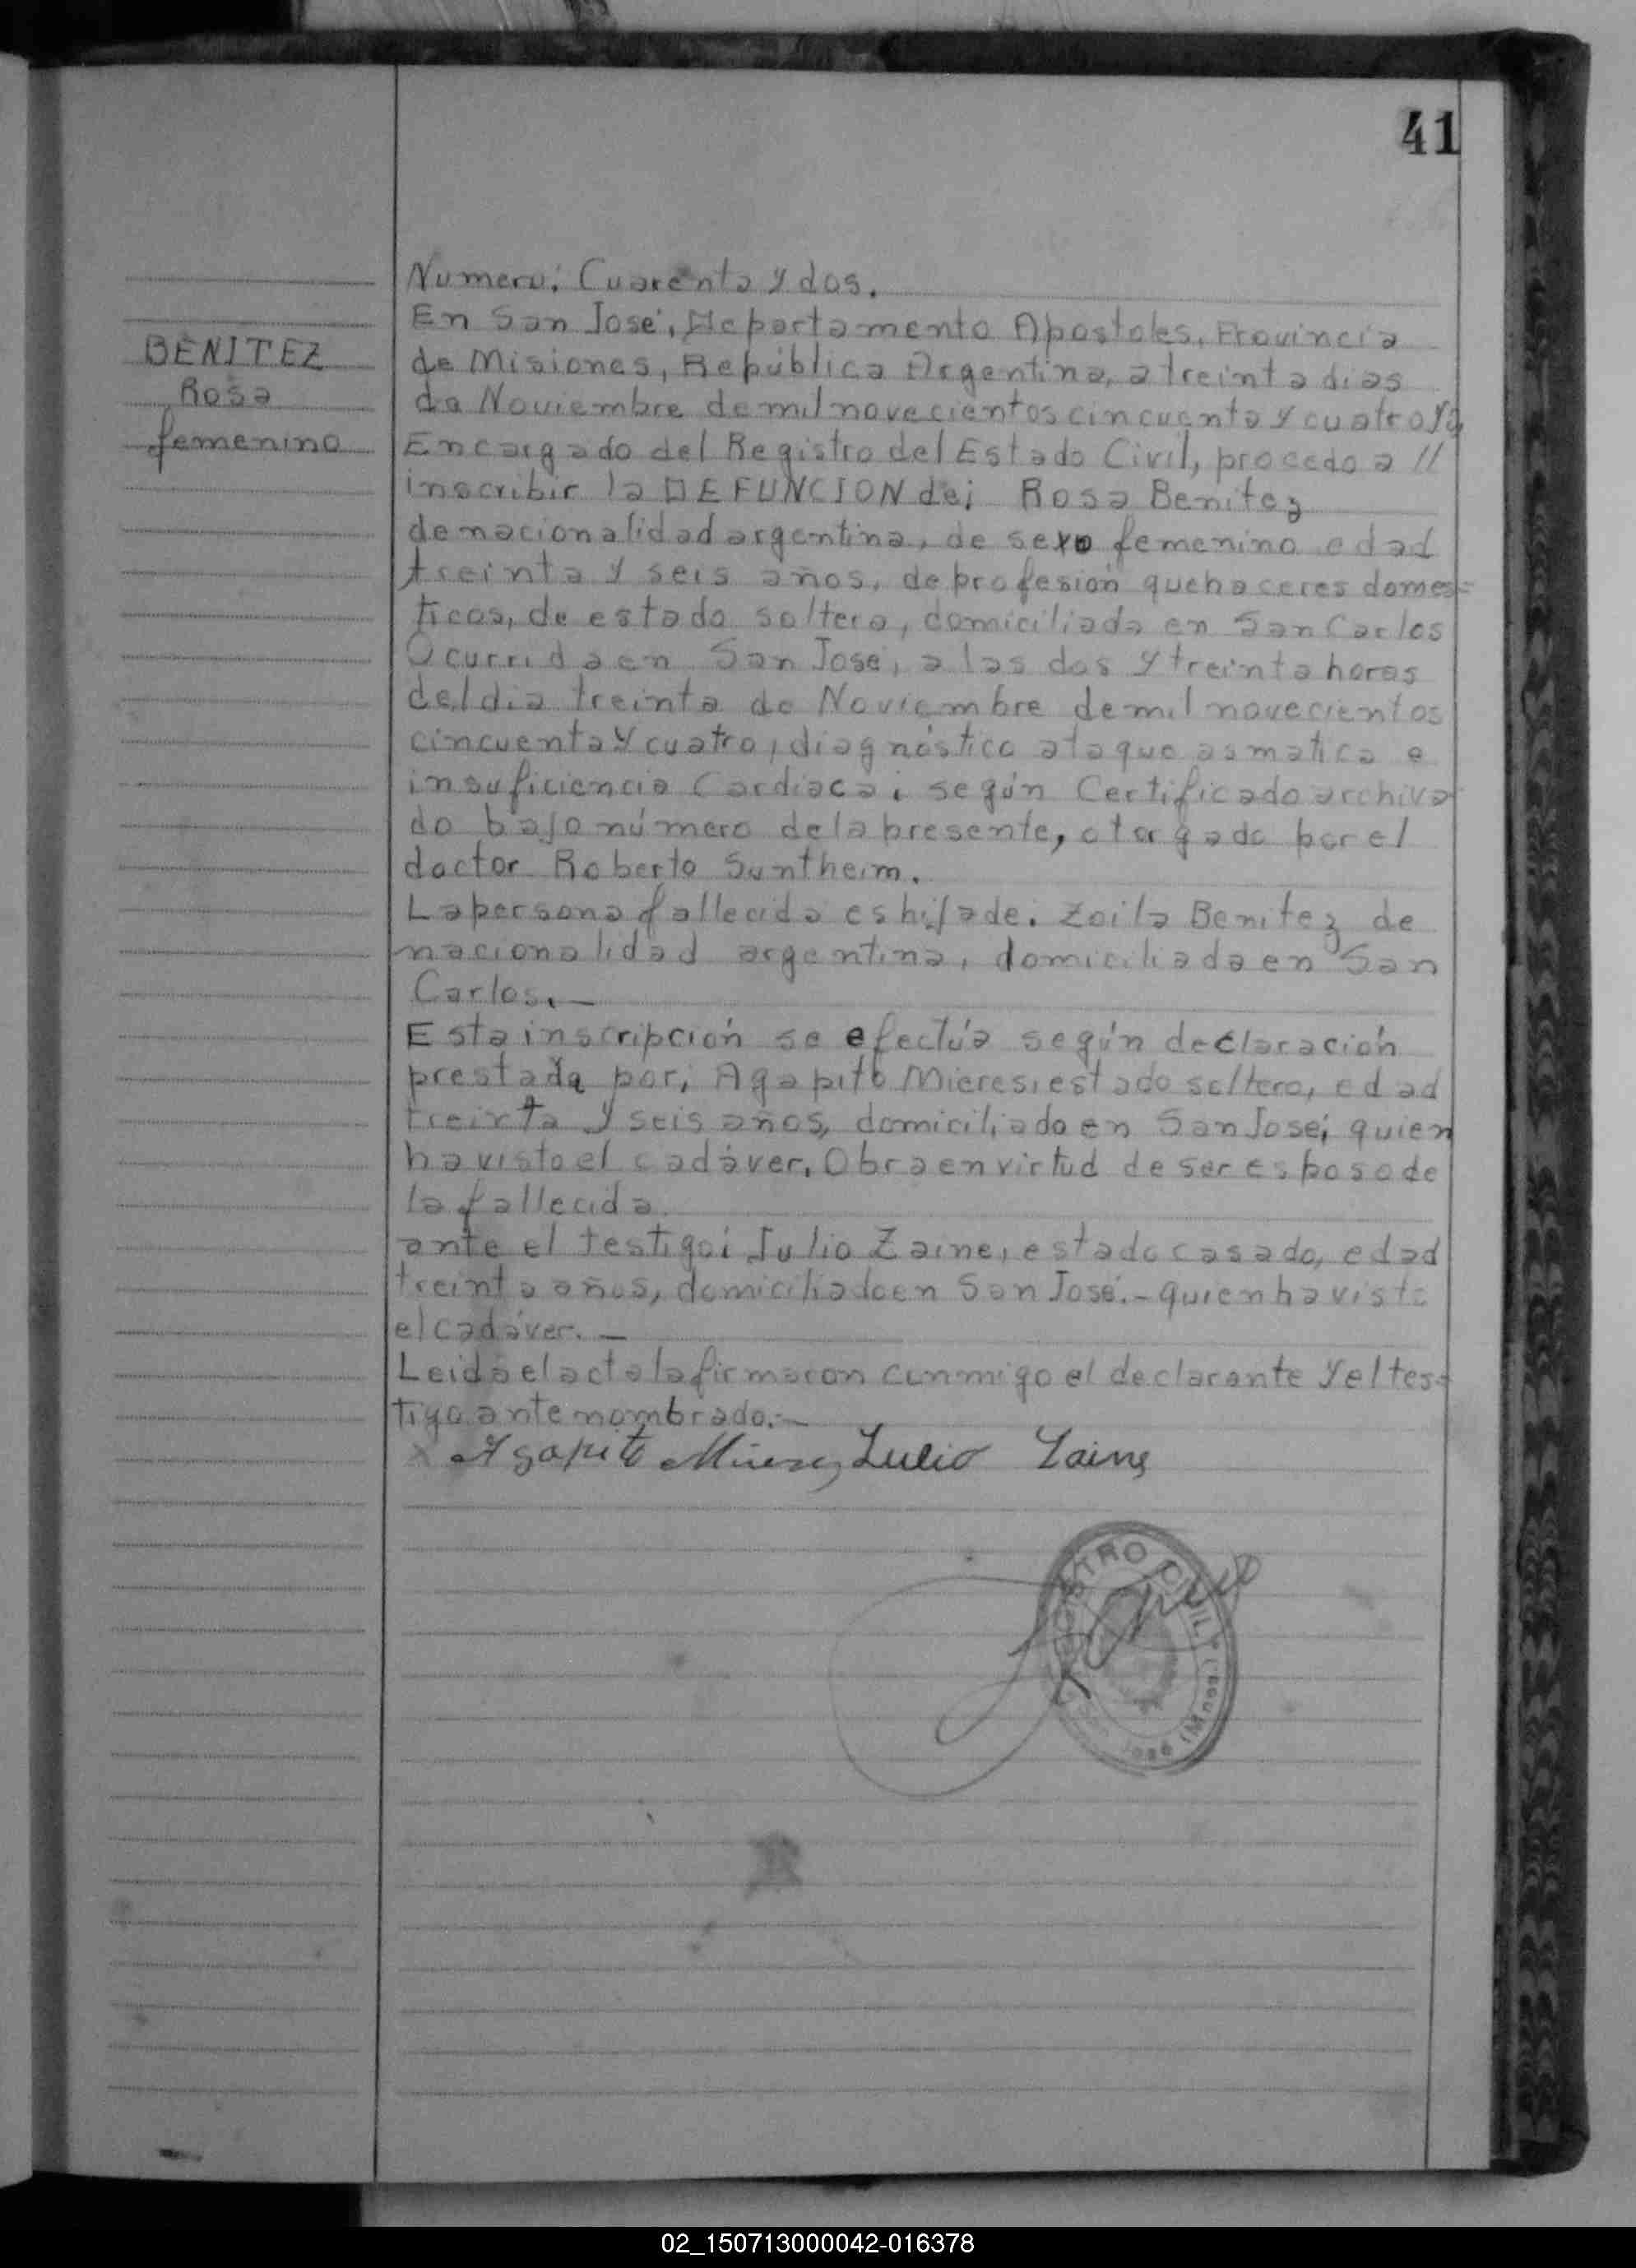 41
Numero: Cuarenta y dos.
En San José, Departamento Apostoles, Provincia
BENITEZ
de Misiones, República Argentina, a treinta dias
Rosa
de Noviembre de mil novecientos cincuenta y cuatro Yo,
femenino
Encargado del Registro del Estado Civil, procedo a //
inscribir la DEFUNCION de: Rosa Benitez
de nacionalidad argentina, de sexo femenino edad
treinta y seis años, de profesión quehaceres domes=
ticos, de estado soltera, domiciliada en San Carlos
Ocurrida en San José, a las dos y treinta horas
del dia treinta de Noviembre de mil novecientos
cincuenta y cuatro, diagnóstico ataque asmatico e
insuficiencia Cardiaca; según Certificado archiva
do bajo número de la presente, otorgado por el
doctor Roberto Suntheim.
La persona fallecida es hija de: Zoila Benitez de
nacionalidad argentina, domiciliada en San
Carlos.—
Esta inscripción se efectúa según declaración
prestada por; Agapito Mieres, estado soltero, edad
treinta y seis años, domiciliado en San José; quien
ha visto el cadáver. Obra en virtud de ser esposo de
la fallecida.
ante el testigo: Julio Zaine, estado casado, edad
treinta años, domiciliado en San José.- quien ha visto
el cadáver.—
Leida el acta la firmaron conmigo el declarante y el tes=
tigo antenombrado.—
Agapito Mieres Julio Zaine
REGISTRO CIVIL
San José (Mnes)
02_150713000042-016378